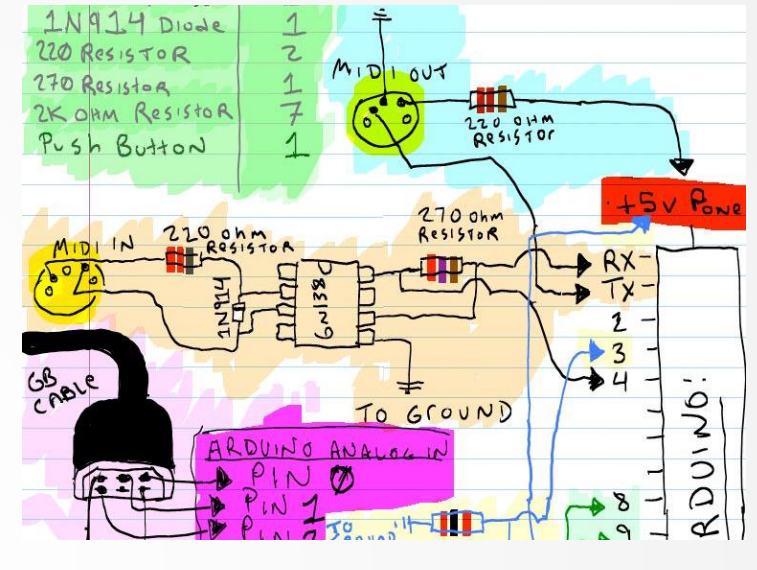 1N914 Diode 1
220 Resistor 2
270 Resistor 1
2K OHM Resistor 7
Push Button 1
MIDI OUT
220 OHM
Resistor
+5V Powe
MIDI IN
220 ohm
Resistor
1N914
6N138
270 ohm
Resistor
RX
TX
2
3
4
8
9
TO GROUND
GB
CABLE
ARDUINO ANALOG IN
PIN 0
PIN 1
PIN 2
To
Ground
RDUINO: